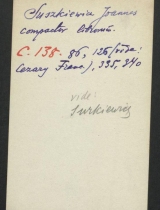 Suszkiewicz Joannes
compactor librorum.
C. 138. 86, 126 (vide:
Cezary Franc.), 335, 340
vide:
Surkiewicz